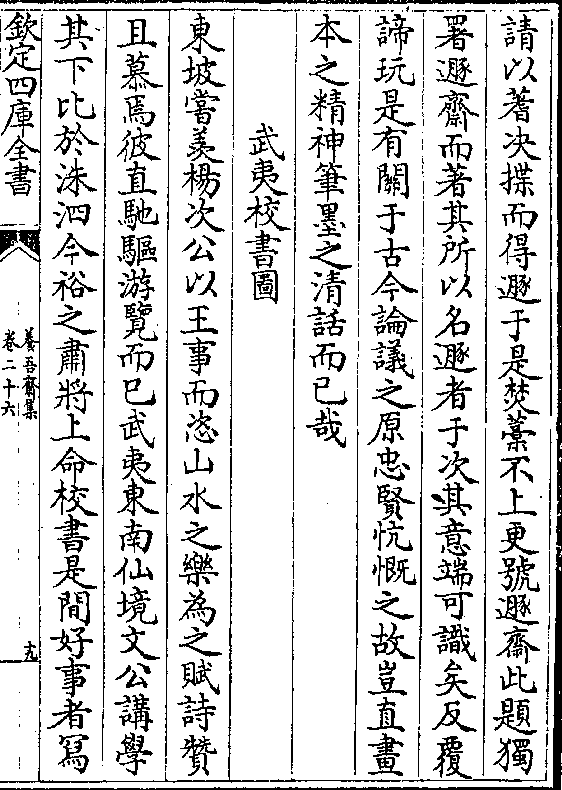 請以蓍决揲而得遯于是焚藁不上更號遯齋此題獨
署遯齋而著其所以名遯者于次其意端可識矣反覆
諦玩是有關于古今論議之原忠賢忼慨之故豈直畫
本之精神筆墨之清話而已哉
武夷校書圖
東坡嘗羡楊次公以王事而恣山水之樂為之賦詩贊
且慕焉彼直馳驅游覽而已武夷東南仙境文公講學
其下比於洙泗今裕之肅將上命校書是間好事者寫
欽定四庫全書
養吾齋集
卷二十六
九